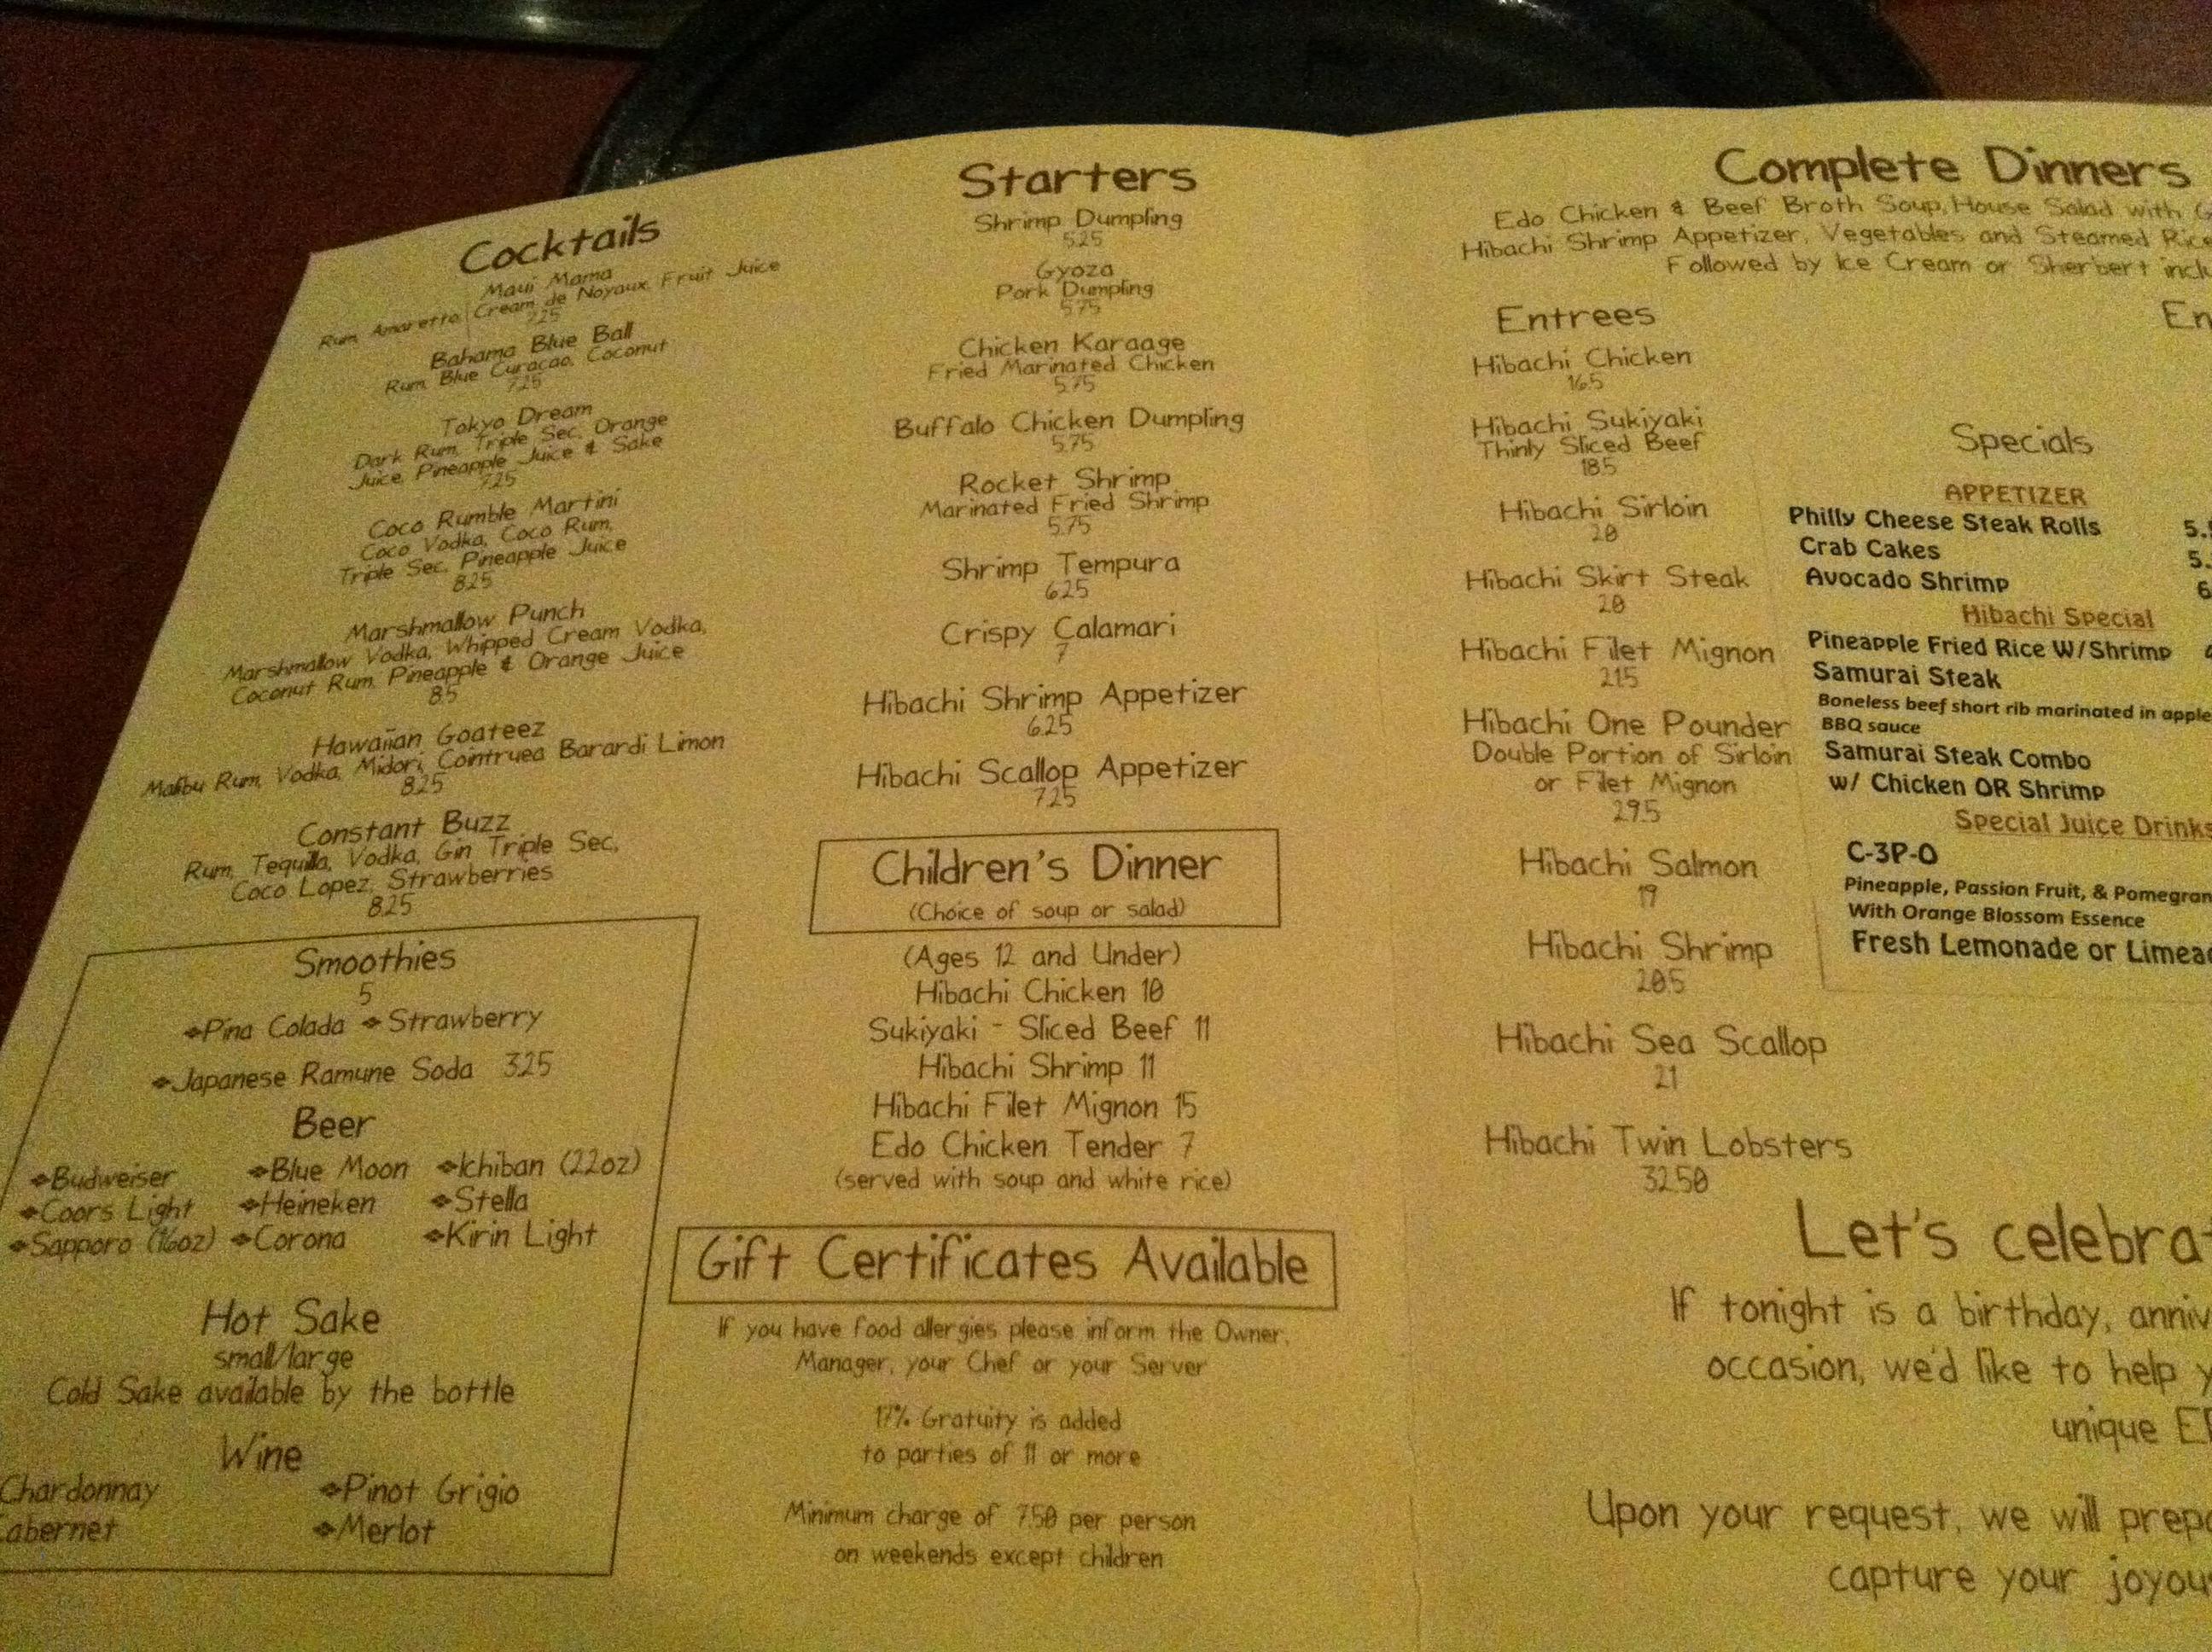 Cocktails
Maui Mama
Rum, Amaretto, Cream de Noyaux, Fruit Juice
7.25
Bahama Blue Ball
Rum, Blue Curacao, Coconut
7.25
Tokyo Dream
Dark Rum, Triple Sec, Orange
Juice, Pineapple Juice & Sake
7.25
Coco Rumble Martini
Coco Vodka, Coco Rum,
Triple Sec, Pineapple Juice
8.25
Marshmallow Punch
Marshmallow Vodka, Whipped Cream Vodka,
Coconut Rum, Pineapple & Orange Juice
8.5
Hawaiian Goateez
Malibu Rum, Vodka, Midori, Cointruea Barardi Limon
8.25
Constant Buzz
Rum, Tequilla, Vodka, Gin Triple Sec,
Coco Lopez, Strawberries
8.25
Smoothies
5
Pina Colada Strawberry
Japanese Ramune Soda 3.25
Beer
Budweiser Blue Moon Ichiban (22oz)
Coors Light Heineken Stella
Sapporo (16oz) Corona Kirin Light
Hot Sake
small/large
Cold Sake available by the bottle
Wine
Chardonnay Pinot Grigio
Cabernet Merlot
Starters
Shrimp Dumpling
5.25
Gyoza
Pork Dumpling
5.75
Chicken Karaage
Fried Marinated Chicken
5.75
Buffalo Chicken Dumpling
5.75
Rocket Shrimp
Marinated Fried Shrimp
5.75
Shrimp Tempura
6.25
Crispy Calamari
7
Hibachi Shrimp Appetizer
6.25
Hibachi Scallop Appetizer
7.25
Children's Dinner
(Choice of soup or salad)
(Ages 12 and Under)
Hibachi Chicken 10
Sukiyaki - Sliced Beef 11
Hibachi Shrimp 11
Hibachi Filet Mignon 15
Edo Chicken Tender 7
(served with soup and white rice)
Gift Certificates Available
If you have food allergies please inform the Owner,
Manager, your Chef or your Server
17% Gratuity is added
to parties of 11 or more
Minimum charge of 7.50 per person
on weekends except children
Complete Dinners
Edo Chicken & Beef Broth Soup, House Salad with
Hibachi Shrimp Appetizer, Vegetables and Steamed Rice
Followed by Ice Cream or Sherbert incl
Entrees
Hibachi Chicken
16.5
Hibachi Sukiyaki
Thinly Sliced Beef
18.5
Hibachi Sirloin
20
Hibachi Skirt Steak
20
Hibachi Filet Mignon
21.5
Hibachi One Pounder
Double Portion of Sirloin
or Filet Mignon
29.5
Hibachi Salmon
19
Hibachi Shrimp
20.5
Hibachi Sea Scallop
21
Hibachi Twin Lobsters
32.50
En
Specials
APPETIZER
Philly Cheese Steak Rolls 5.
Crab Cakes 5.
Avocado Shrimp 6
Hibachi Special
Pineapple Fried Rice W/Shrimp
Samurai Steak
Boneless beef short rib marinated in apple
BBQ sauce
Samurai Steak Combo
w/ Chicken OR Shrimp
Special Juice Drinks
C-3P-O
Pineapple, Passion Fruit, & Pomegran
With Orange Blossom Essence
Fresh Lemonade or Limea
Let's celebra
If tonight is a birthday, anniv
occasion, we'd like to help y
unique E
Upon your request, we will prep
capture your joyou